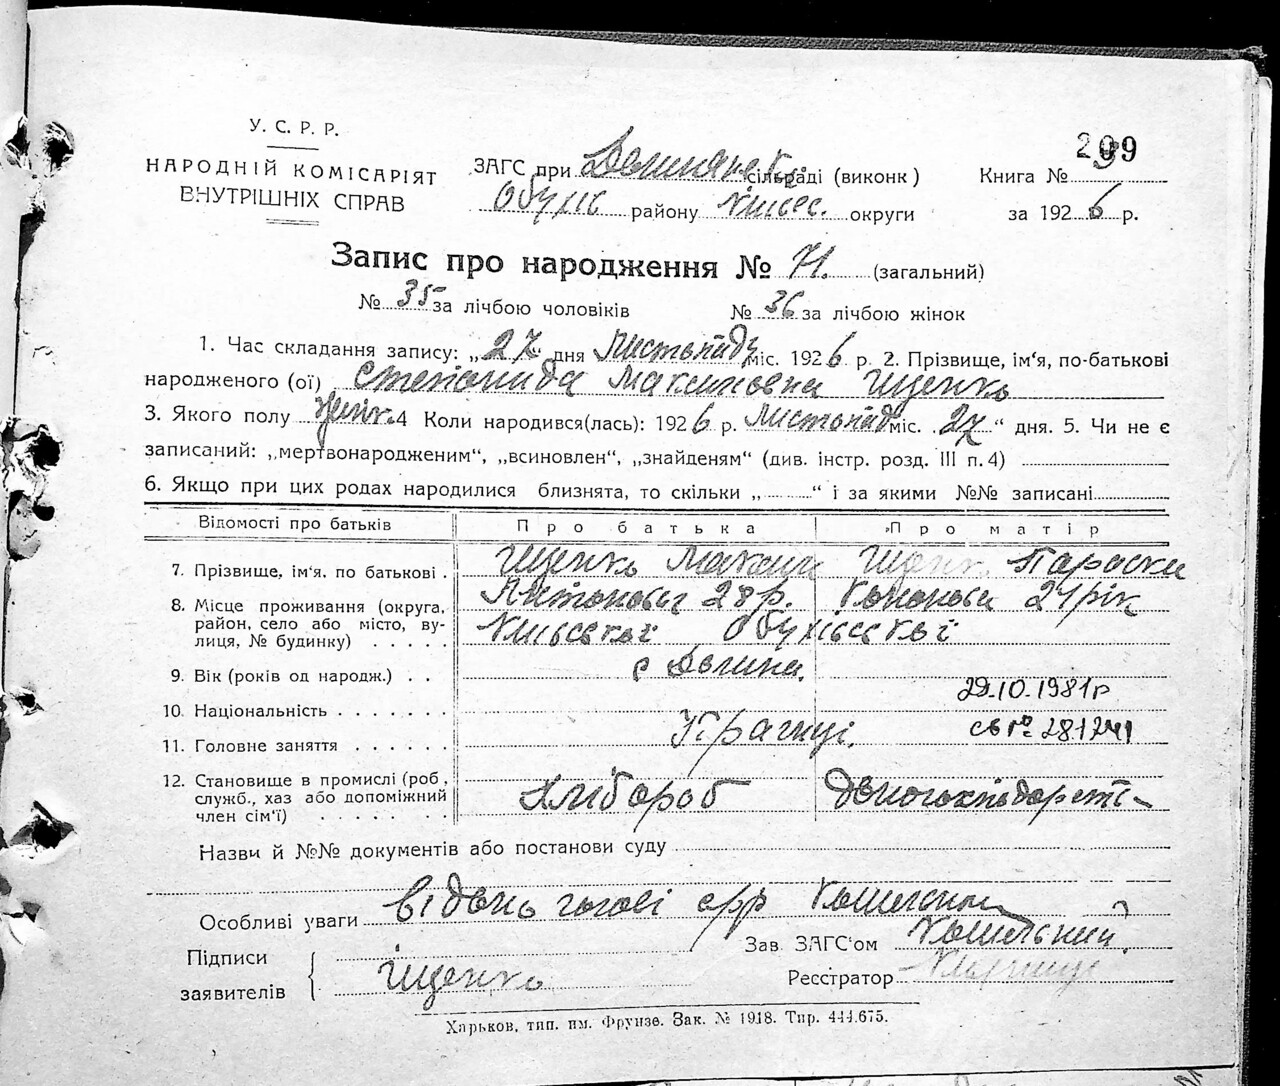 У. С. Р. Р.
НАРОДНІЙ КОМІСАРІЯТ
ВНУТРІШНІХ СПРАВ
ЗАГС при Долинянськ. сільраді (виконк)
Обухів району Київс. округи
209
Книга №
за 1926 р.
Запис про народження № 71. (загальний)
№ 35 за лічбою чоловіків № 36 за лічбою жінок
1. Час складання запису: „27“ дня Листопаду міс. 1926 р. 2. Прізвище, ім‘я, по-батькові
народженого (ої) Степанида Максимовна Іщенко
3. Якого полу жін. 4 Коли народився(лась): 1926 р. Листопад міс. „27“ дня. 5. Чи не є
записаний: „мертвонародженим“, „всиновлен“, „знайденям“ (див. інстр. розд. III п. 4)
6. Якщо при цих родах народилися близнята, то скільки „ “ і за якими №№ записані
Відомості про батьків Про батька Про матір
7. Прізвище, ім‘я, по батькові . Іщенко Максим Іщенко Параска
8. Місце проживання (округа, Антонович 28 р. Кононова 24 рік
район, село або місто, ву-
лиця, № будинку) Київської Обухівської
9. Вік (років од народж.) . . с Долина.
29.10.1981 р
10. Національність
11. Головне заняття Українці.
св № 281241
12. Становище в промислі (роб,
служб., хаз або допоміжний Хлібороб
член сім‘ї)
Назви й №№ документів або постанови суду
Особливі уваги
Підписи
заявителів Іщенко
Зав ЗАГС‘ом
Реєстратор
Харьков, тип. им. Фрунзе. Зак. № 1918. Тир. 444.675.